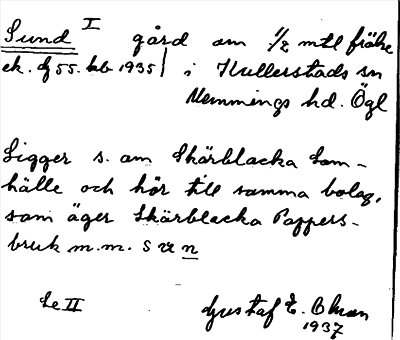 Sund I gård om 1/2 mtl frälse
ek. bl 55. kb 1935 i Kullerstads sn
Memmings hd. Ögl
Ligger s. om Skärblacka Sam-
hälle och hör till samma bolag,
som äger Skärblacka Pappers-
bruk m.m. S v n
Se II
Gustaf E. Ohman
1937